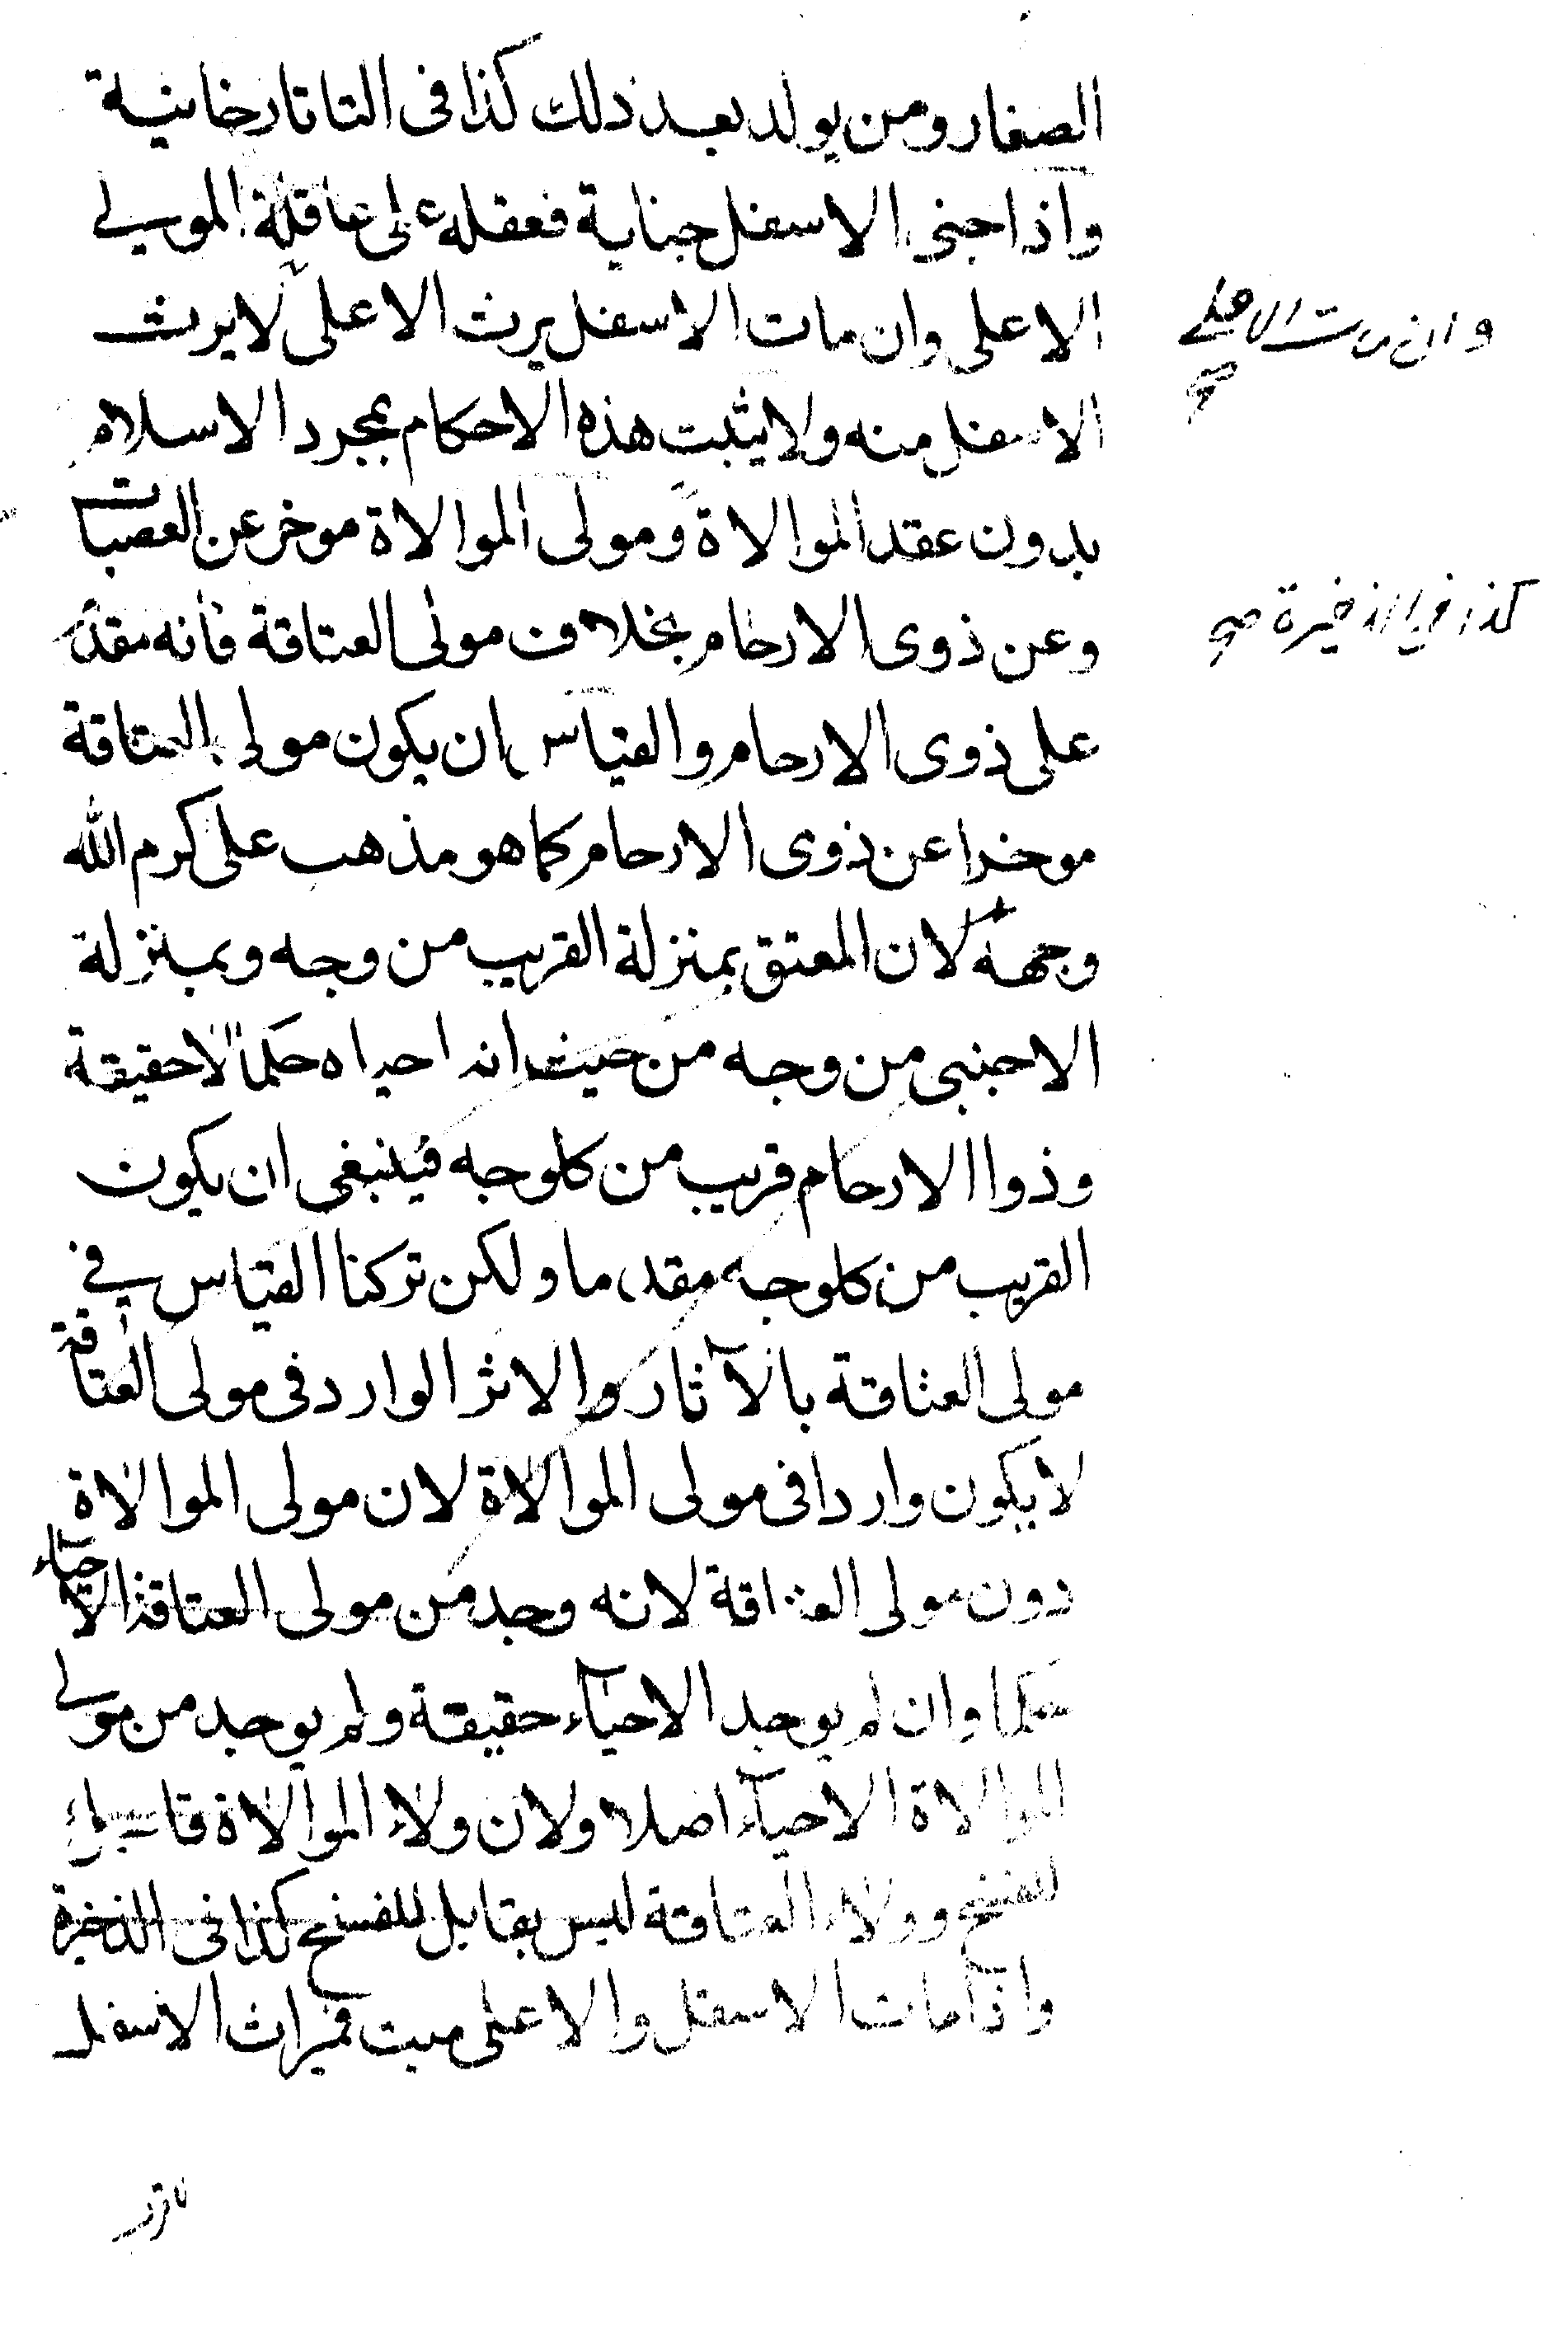 الصغار ومن يولد بعد ذلك كذا فى التاتارخانية
واذا جنى الاسفل جناية فعقله على عاقلة المولى
الاعلى وان مات الاسفل يرث الاعلى لا يرث
وان مات الاعلى صح
الاسفل منه ولا يثبت هذه الاحكام بمجرد الاسلام
بدون عقد الموالاة ومولى الموالاة موخر عن العصبات
كذا فى الذخيرة صح
وعن ذوى الارحام بخلاف مولى العتاقة فانه مقدم
على ذوى الارحام والقياس ان يكون مولى العتاقة
موخرا عن ذوى الارحام كما هو مذهب على كرم الله
وجهه لان المعتق بمنزلة القريب من وجه وبمنزلة
الاجنبى من وجه من حيث انه احياه حكما لا حقيقة
وذوا الارحام قريب من كلوجه فينبغى ان يكون
القريب من كلوجه مقدما ولكن تركنا القياس في
مولى العتاقة بالآثار والاثر الوارد فى مولى العتاقة
لا يكون واردا فى مولى الموالاة لان مولى الموالاة
دون مولى العتاقة لانه وجد من مولى العتاقة الاحياء
حكما وان لم يوجد الاحيآء حقيقة ولم يوجد من مولى
الموالاة الاحيآء اصلا ولان ولاء الموالاة قابل
للفسخ وولاء العتاقة ليس بقابل للفسخ كذا فى الذخيرة
واذا مات الاسفل والاعلى ميت فميراث الاسفل